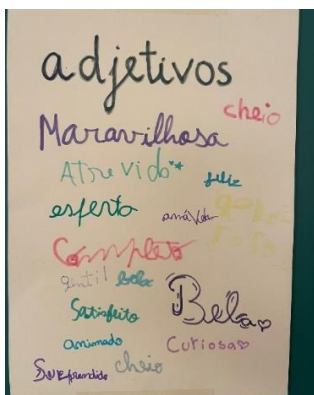 adjetivos
cheio
Maravilhosa
Atrevido
feliz
esperto amável
Completo
gentil bela
Satisfeito Bela
animado Curiosa
Surpreendido cheio